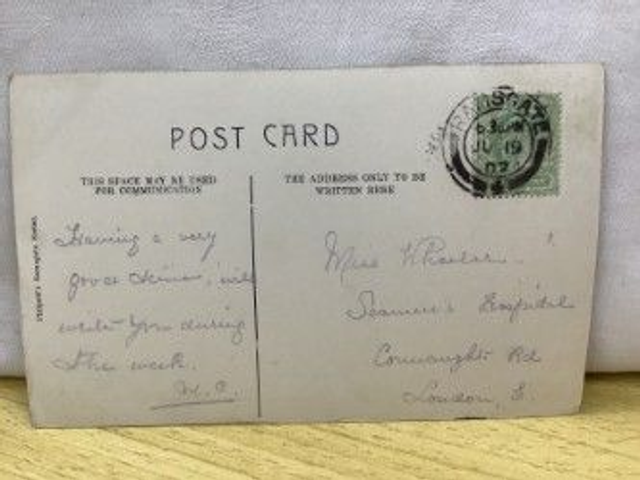 POST CARD
RAMSGATE
JL 19
07
THIS SPACE MAY BE USED
FOR COMMUNICATION
THE ADDRESS ONLY TO BE
WRITTEN HERE
Having a very
good time, will
write you during
the week.
Miss Wheeler
Seamen's Hospital
Connaught Rd
London, E.